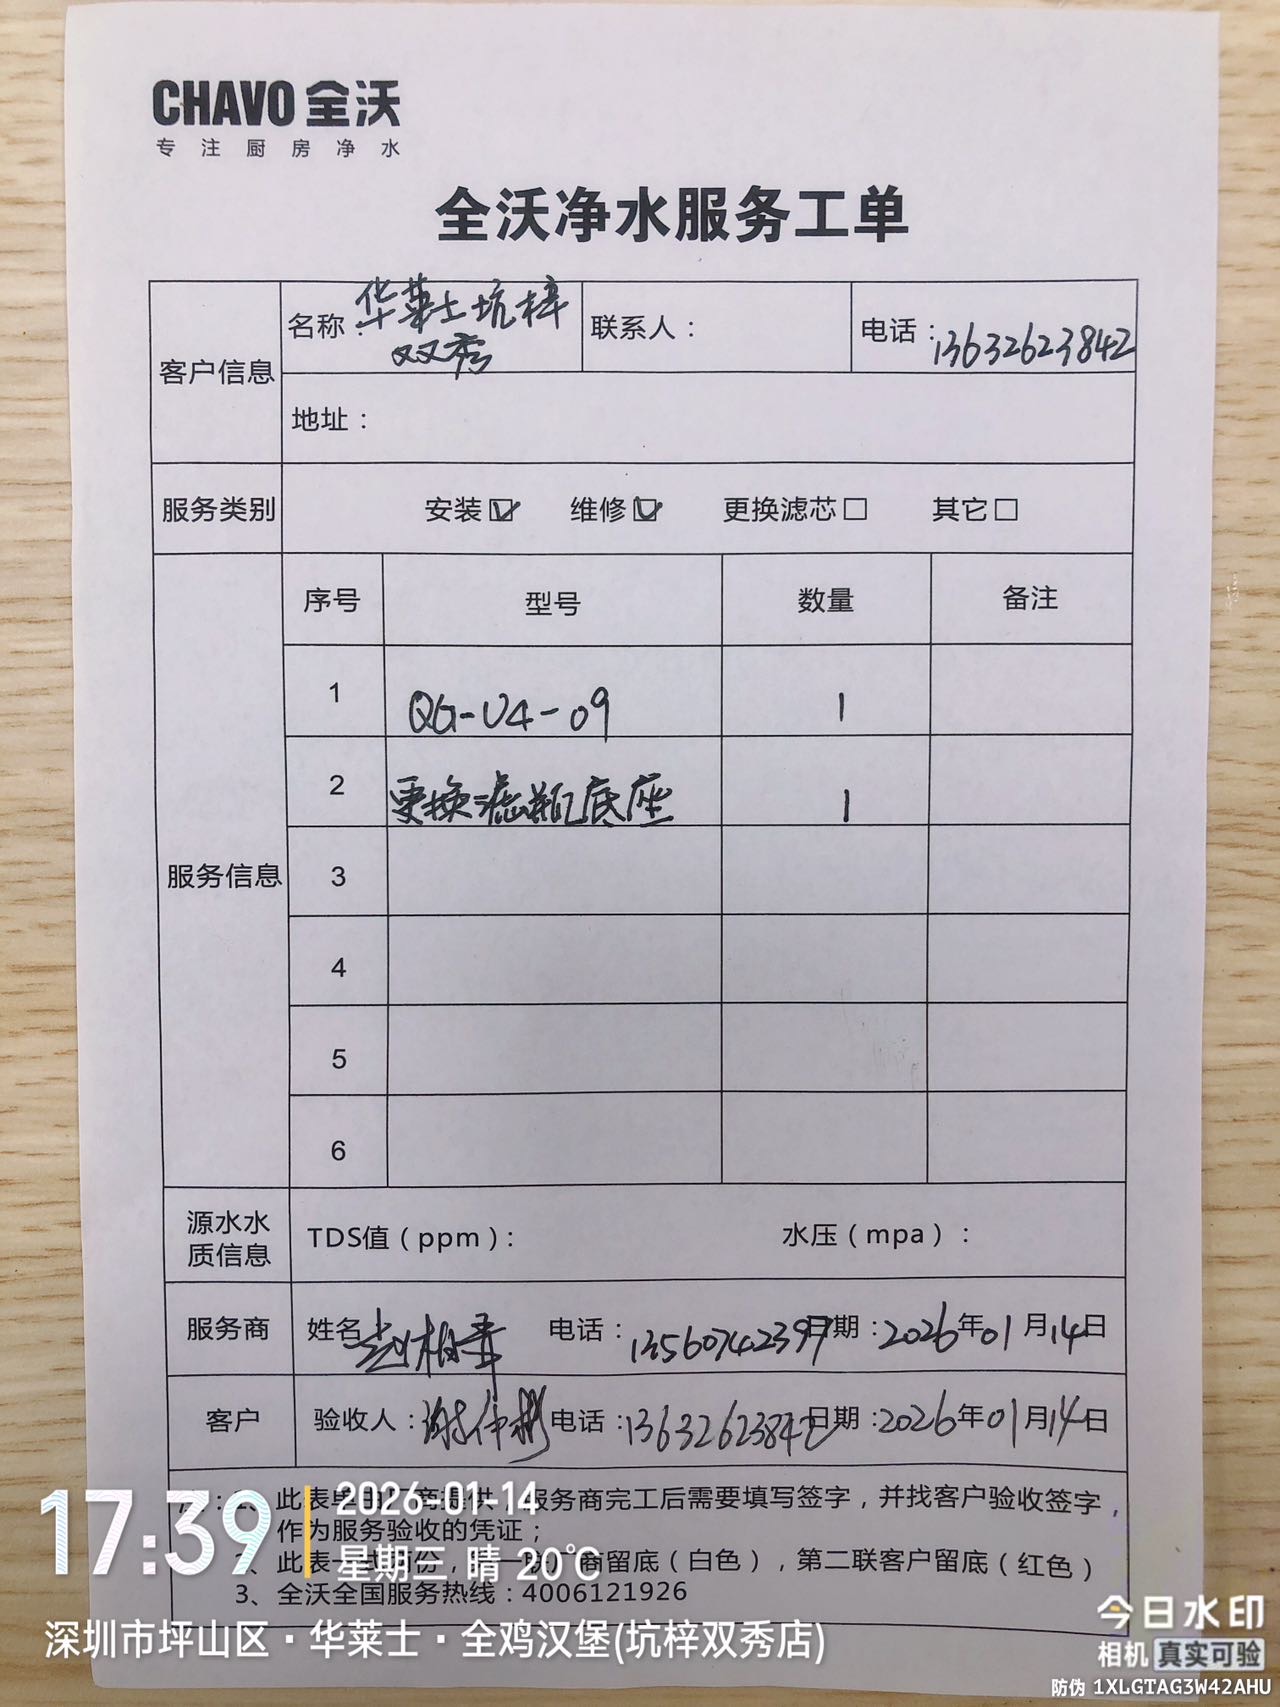 CHAVO 全沃
专注厨房净水
全沃净水服务工单
客户信息
名称：华莱士坑梓
双秀
联系人：
电话：13632623842
地址：
服务类别
安装☑ 维修☑ 更换滤芯☐ 其它☐
服务信息
序号 型号 数量 备注
1 QG-U4-09 1
2 更换滤瓶底座 1
3
4
5
6
源水水
质信息
TDS值（ppm）： 水压（mpa）：
服务商 姓名 电话：13560742397 日期：2026年01月14日
客户 验收人：谢伟彬 电话：13632623842 日期：2026年01月14日
此表单由厂商提供，服务商完工后需要填写签字，并找客户验收签字，
作为服务验收的凭证；
2、此表一式两份，第一联厂商留底（白色），第二联客户留底（红色）
3、全沃全国服务热线：4006121926
17:39
2026-01-14
星期三 晴 20℃
深圳市坪山区·华莱士·全鸡汉堡(坑梓双秀店)
今日水印
相机 真实可验
防伪 1XLGTAG3W42AHU